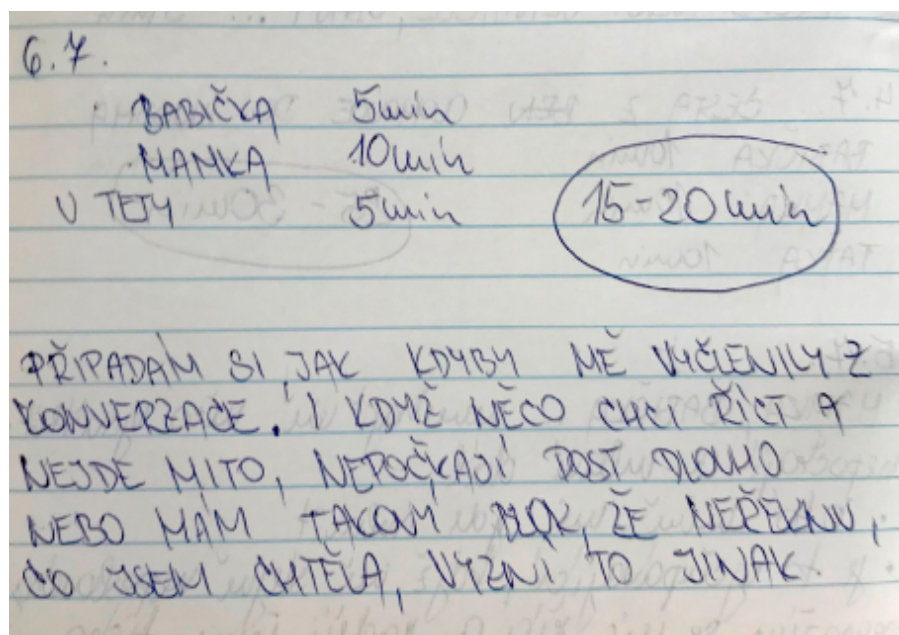 6.7.
BABIČKA 5min
MAMKA 10min
U TETY 5min 15-20min
PŘIPADÁM SI JAK KDYBY MĚ VYČLENILY Z
KONVERZACE. I KDYŽ NĚCO CHCI ŘÍCT A
NEJDE MI TO, NEPOČKAJÍ DOST DLOUHO
NEBO MÁM TAKOVÝ BLOK, ŽE NEŘEKNU,
CO JSEM CHTĚLA, VYZNÍ TO JINAK.